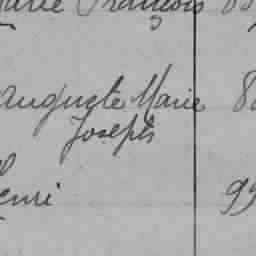 Marie François 8
Auguste Marie 8
Joseph
Henri 99